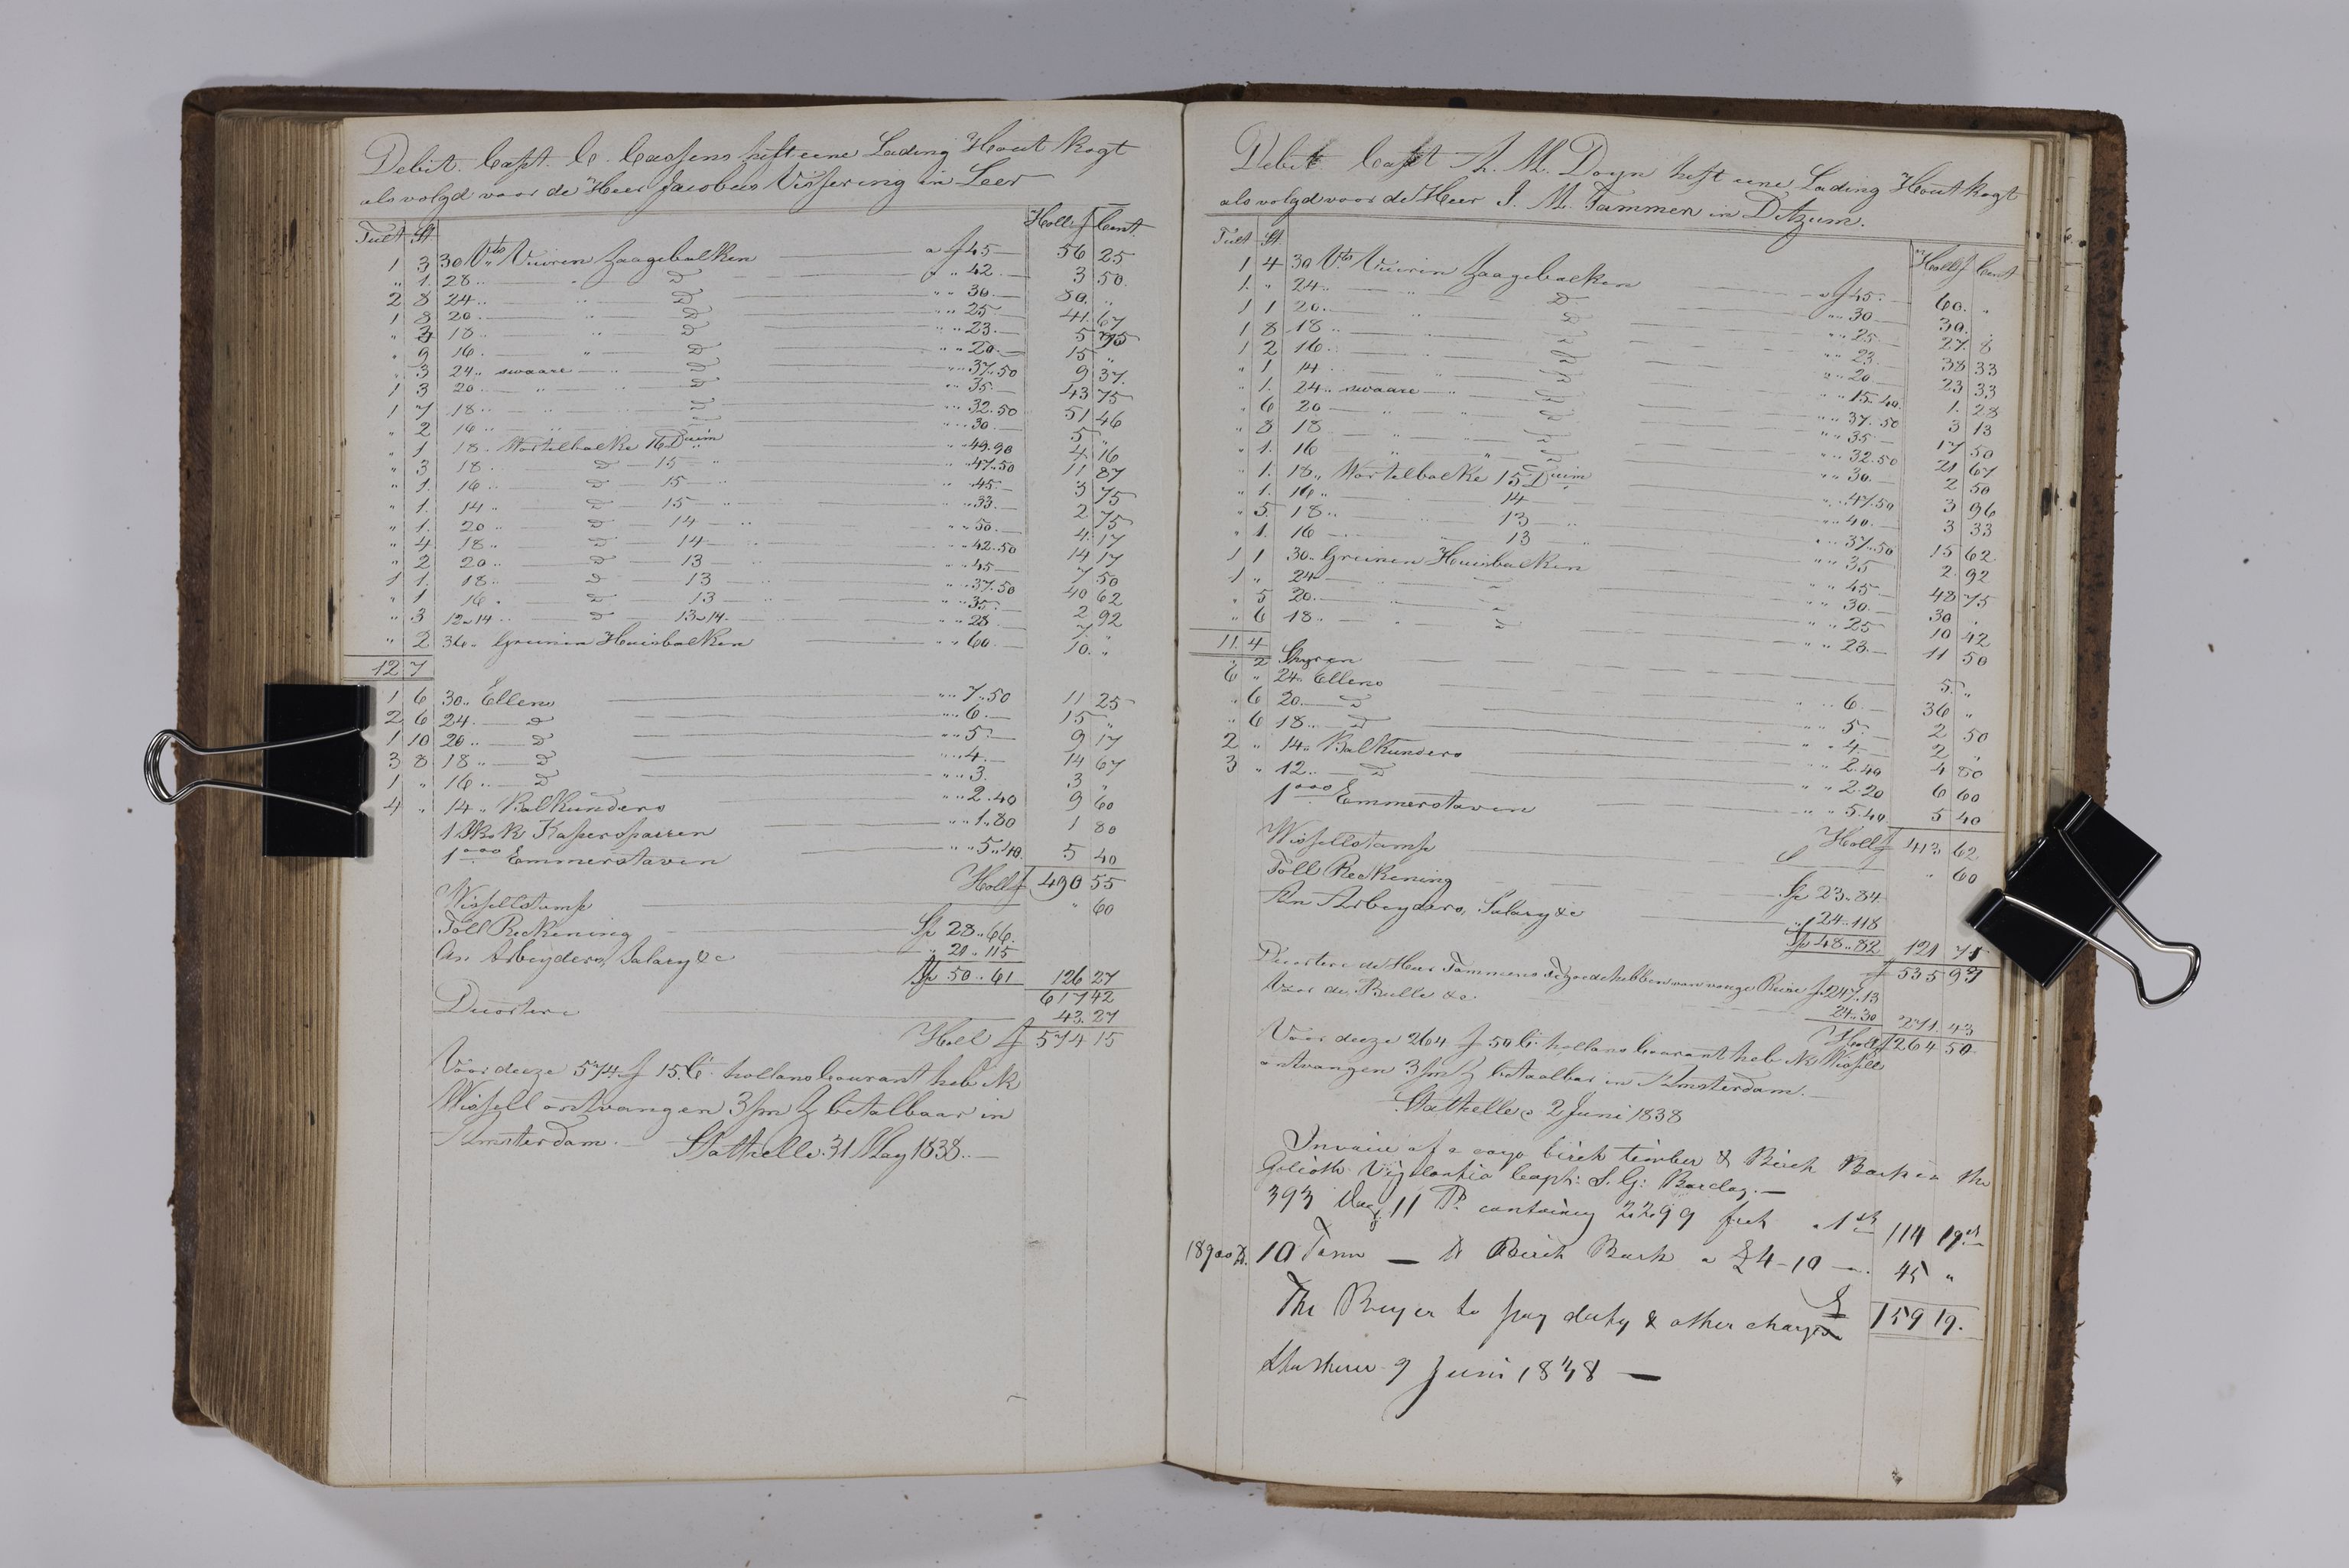 Debit. Capt. C. Cassens heft eene Lading Hout kogt
als volgd voor de Heer Jacobus Vissering in Leer
Tult St Holl f Cent.
1 3 30 Vts Vuiren Zaagebalken a f 45 56 25
" 1. 28 " " D " " 42 3 50.
2 8 24 " " D " " 30 80 "
1 8 20 " " D " " 25 41 67
" 3 18 " " D " " 23 5 75
" 9 16 " " D " " 20 15 "
" 3 24 " swaare " D " " 37.50 9 37.
1 3 20 " " D " " 35 43 75
1 7 18 " " D " " 32.50 51 46
" 2 16 " " D " " 30 5 "
" 1 18. Wortelbalke 16 Duim " " 49.90 4 16
" 3 18 " D 15 " " " 47.50 11 87
" 1. 16 " D 15 " " " 45 3 75
" 1. 14 " D 15 " " " 33 2 75
" 1. 20 " D 14 " " " 50 4 17
" 4 18 " D 14 " " " 42.50 14 17
" 2 20 " D 13 " " 45 7 50
1 1. 18 " D 13 " " " 37.50 40 62
" 1 16 " D 13 " " " 35 2 92
" 3 12 a 14 D 13 a 14. " " 28 7 "
" 2 36 " Greinen Huisbalken " " 60 10. "
12 7
1 6 30 " Ellens " " 7.50 11 25
2 6 24. D " " 6. 15 "
1 10 20 " D " " 5 9 17
3 8 18 " D " " 4. 14 67
1 " 16 " D " " 3. 3 "
4 " 14 " Balkunders " " 2.40 9 60
1 Skok Kaspersparren " " 1.80 1 80
1000 Emmerstaven " " 5.40 5 40
Holl f 490 55
Wissellstamp " 60
Toll Reckening Sp 28.66.
An Arbeyders, Salary &c " 20.115
Sp 50.61 126 27
617 42
Duortere 43.27
Holl f 574 15
Voor deeze 574 f 15 Ct. hollans Courant heb ik
Wissell ontvangen 3/m betalbaar in
Amsterdam. Stathelle 31 May 1838.
Debit Capt H. M. Doyn heft eene Lading Hout kogt
als volgd voor de Heer I. M. Tammen in Ditzum.
Tult St. Holl f Cent
1 4 30 Vts Vuiren Zaagebalken a f 45. 60. "
1. " 24 " " D " " 30 30. "
1 1 20. " D " " 25 27. 8
1 8 18 " D " " 23 38 33
1 2 16 " D " " 20 23 33
" 1 14 " D " " 15.40. 1. 28
" 1. 24 " swaare D " " 37.50 3 13
" 6 20 " " D " " 35 17 50
" 8 18 " " D " " 32.50 21 67
" 1. 16 " " D " " 30. 2 50
" 1. 18 " Wortelbalke 15 Duim " " 47.50 3 96
" 1. 16 " 14 " " 40. 3 33
" 5. 18 " 13 " " 37.50 15 62
" 1. 16 13 " " 35 2. 92
1 1 30 " Greinen Huisbalken " " 45 48 75
1 " 24 " " " 30. 30 "
" 5 20. " " " 25 10 42
" 6 18 " " " " 23. 11 50
11. 4
" 2 Spyren 5. "
6 " 24 " Ellens " " 6. 36 "
" 6 20. D " " 5. 2 50
" 6 18 " D " " 4. 2 "
2 " 14 " Balkunders " " 2.40 4 80
3 " 12 " D " " 2.20 6 60
1000 Emmerstaven " " 5.40. 5 40
Holl f 413 62
Wissellstamp " 60
Toll Reckening Sp 23.84
An Arbeyders, Salary &c " 24.118
Sp 48.82 121 75
f 535 97
Duortere de Heer Tammens Tegoedehebben van vorige Reise f 247.13
Voor de Bulle &c. 24.30 271.43
Holl f 264 50.
Voor deeze 264 f 50 Ct. hollans Courant heb ik Wissell
ontvangen 3/m betaalbar in Amsterdam.
Stathelle 2 Juni 1838
Invoice of a cargo birch timber & Birch Bark in the
Galioth Vigilantia Capt: S. G: Barclay.
393 11 Ps. containing 2299 feet a 1 sh 114 19
18900 lb. 10 Tonn Birch Bark a £4-10 45 "
£ 159 19.
The Buyer to pay duty & other charges
9 Juni 1838